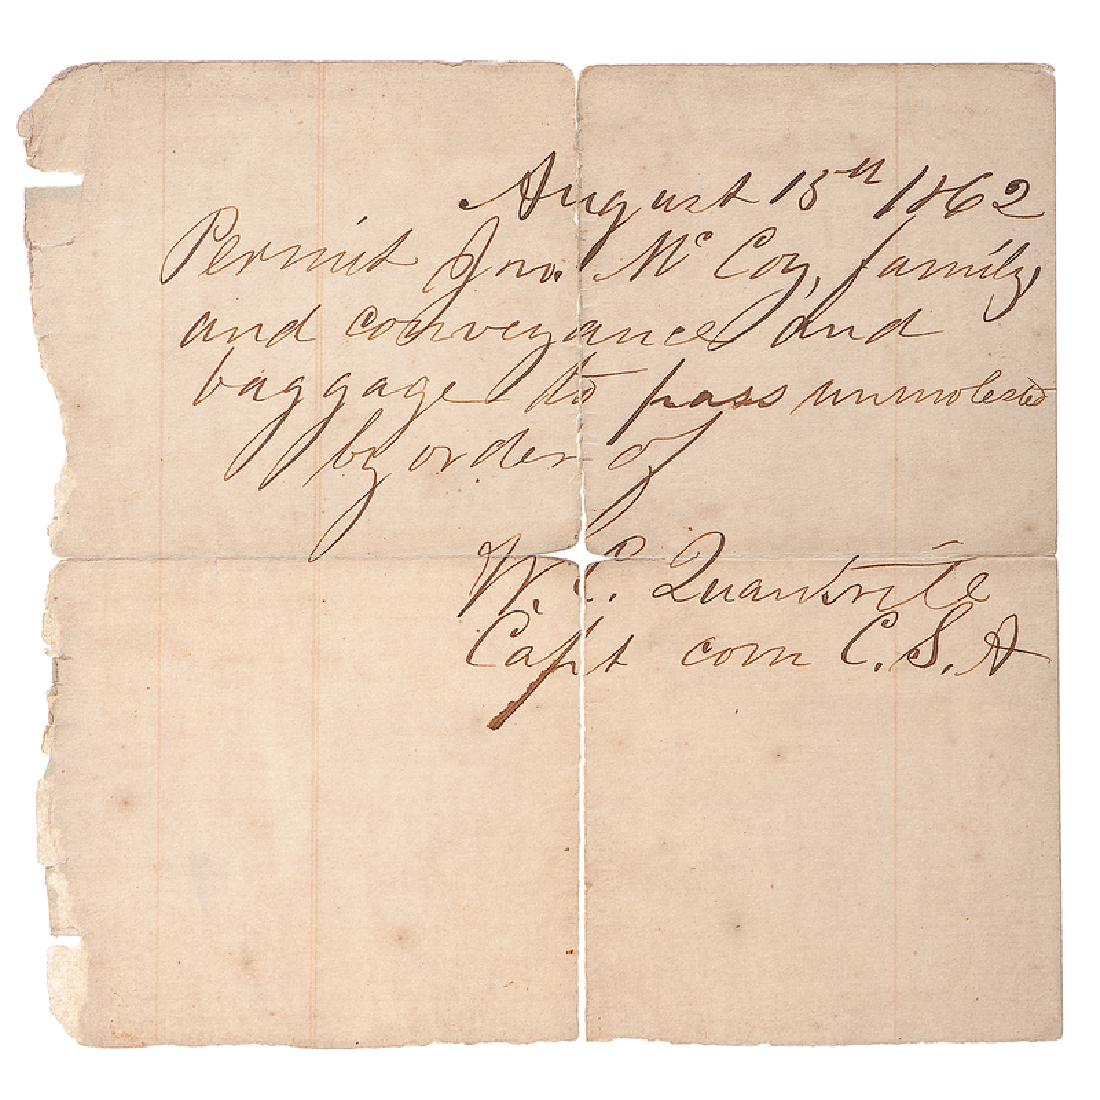 August 15th 1862
Permit Jno. Mc Coy, family,
and conveyance and
baggage to pass unmolested
by order of
W. C. Quantrile
Capt com C. S. A